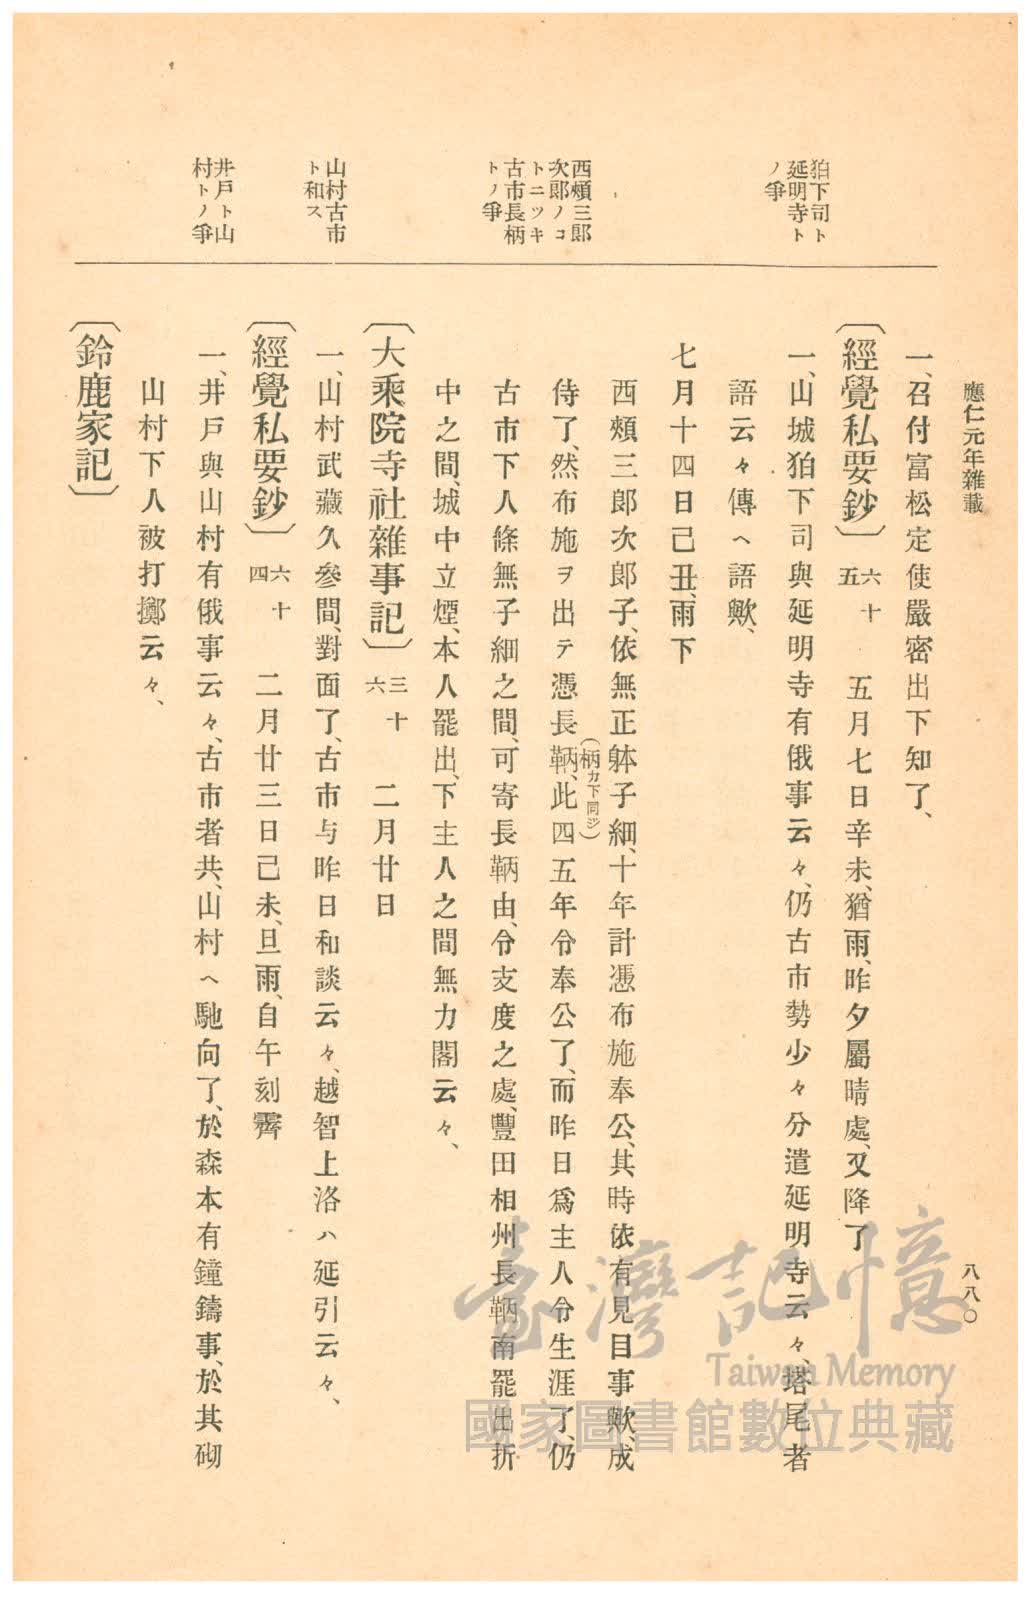 應仁元年雜載
八八〇
狛下司ト
延明寺ト
ノ爭
西頰三郎
次郎ノコ
トニツキ
古市長柄
トノ爭
山村古市
ト和ス
井戸ト山
村トノ爭
一、召付富松定使嚴密出下知了、
〔經覺私要鈔〕六十五 五月七日辛未、猶雨、昨夕屬晴處、又降了
一、山城狛下司與延明寺有俄事云々、仍古市勢少々分遣延明寺云々、塔尾者
語云々傳ヘ語歟、
七月十四日己丑、雨下
西頰三郎次郎子、依無正躰子細、十年計憑布施奉公、其時依有見目事歟、成
侍了、然布施ヲ出テ憑長鞆、此四五年令奉公了、而昨日爲主人令生涯了、仍
（柄カ下同ジ）
古市下人條無子細之間、可寄長鞆由、令支度之處、豐田相州長鞆南罷出折
中之間、城中立煙、本人罷出、下主人之間無力閣云々、
〔大乘院寺社雜事記〕三十六 二月廿日
一、山村武藏久參間、對面了、古市与昨日和談云々、越智上洛ハ延引云々、
〔經覺私要鈔〕六十四 二月廿三日己未、旦雨、自午刻霽
一、井戸與山村有俄事云々、古市者共、山村ヘ馳向了、於森本有鐘鑄事、於其砌
山村下人被打擲云々、
〔鈴鹿家記〕
臺灣記憶
Taiwan Memory
國家圖書館數位典藏